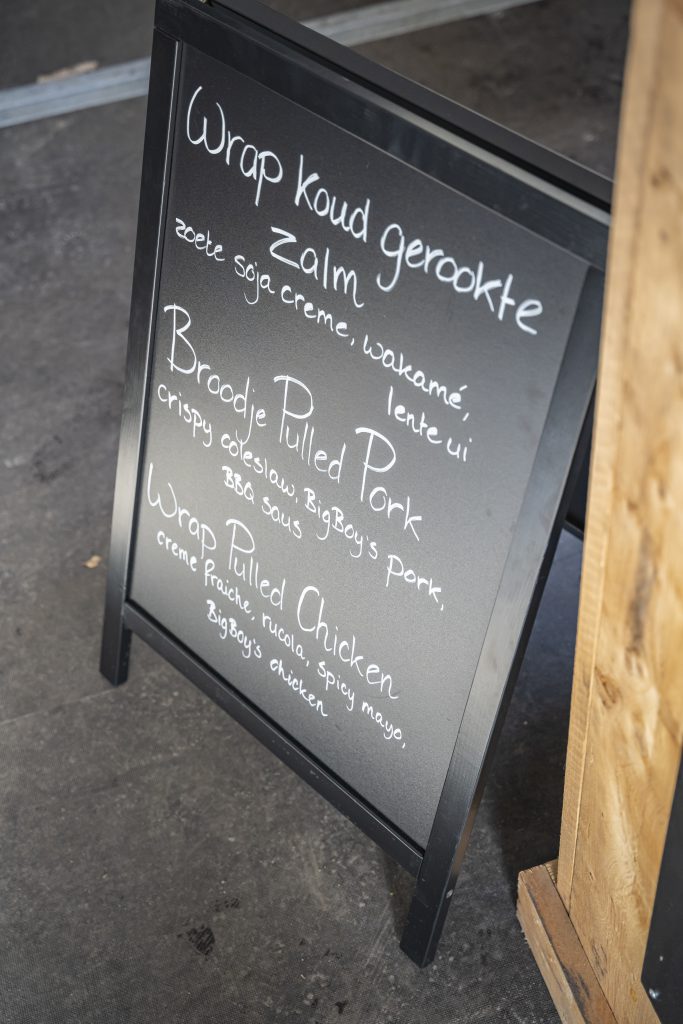 Wrap koud gerookte
zalm
zoete soja creme, wakamé,
lente ui
Broodje Pulled Pork
crispy coleslaw, BigBoy's pork,
BBQ saus
Wrap Pulled Chicken
creme fraiche, rucola, spicy mayo,
BigBoy's chicken